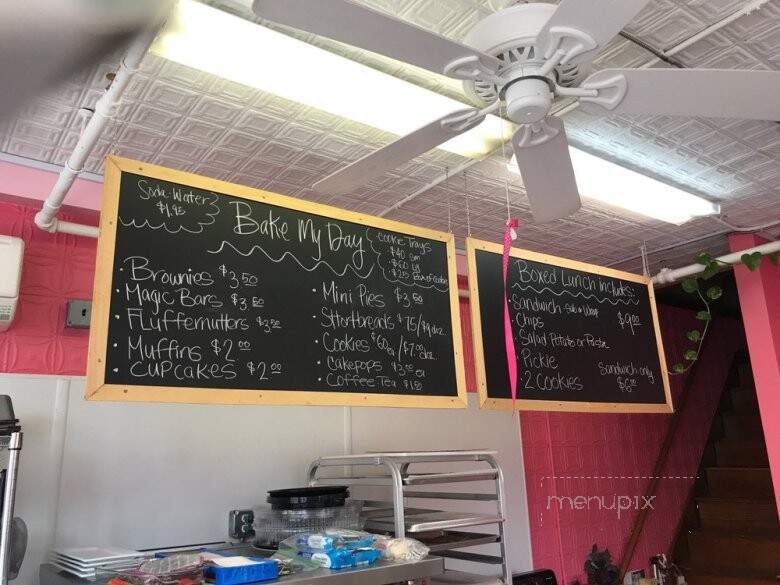 Soda-Water
$1.95
Bake My Day
Cookie Trays
$40 Sm
$60 Lg
• Brownies $3.50
• Magic Bars $3.50
• Fluffernutters
• Muffins $2.00
• Cupcakes $2.00
• Mini Pies
• Shortbreads
• Cookies
• Cakepops
• Coffee Tea
Boxed Lunch includes:
• Sandwich - Sub or Wrap
• Chips $9.00
• Salad Potato or Pasta
• Pickle
• 2 Cookies
Sandwich only
$6.00
menupix